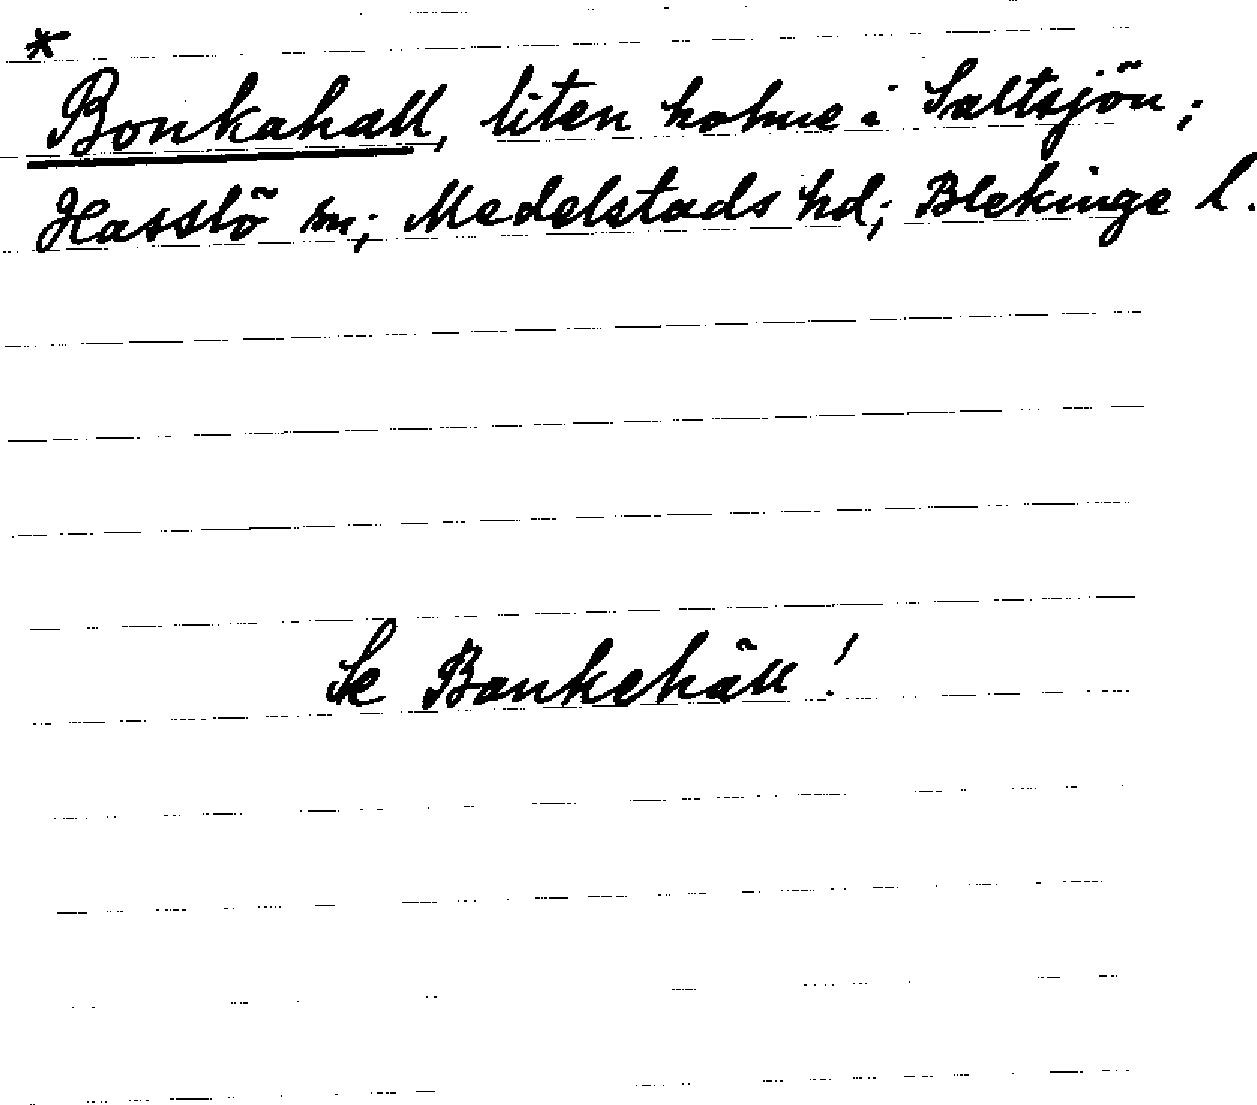 *
Bonkahall, liten holme i Saltsjön;
Hasslö sn; Medelstads hd; Blekinge l.
Se Bankehäll!